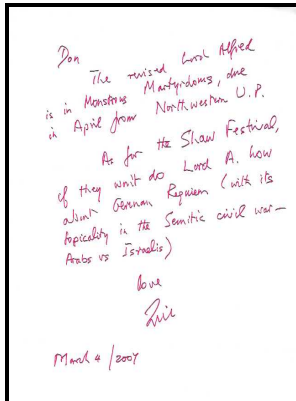 Don
The revised Lord Alfred
is in Monstrous Martyrdoms, due
in April from Northwestern U.P.
As for the Shaw Festival,
if they won't do Lord A. how
about German Requiem (with its
topicality in the Semitic civil war—
Arabs vs Israelis)
love
Eric
March 4/2007